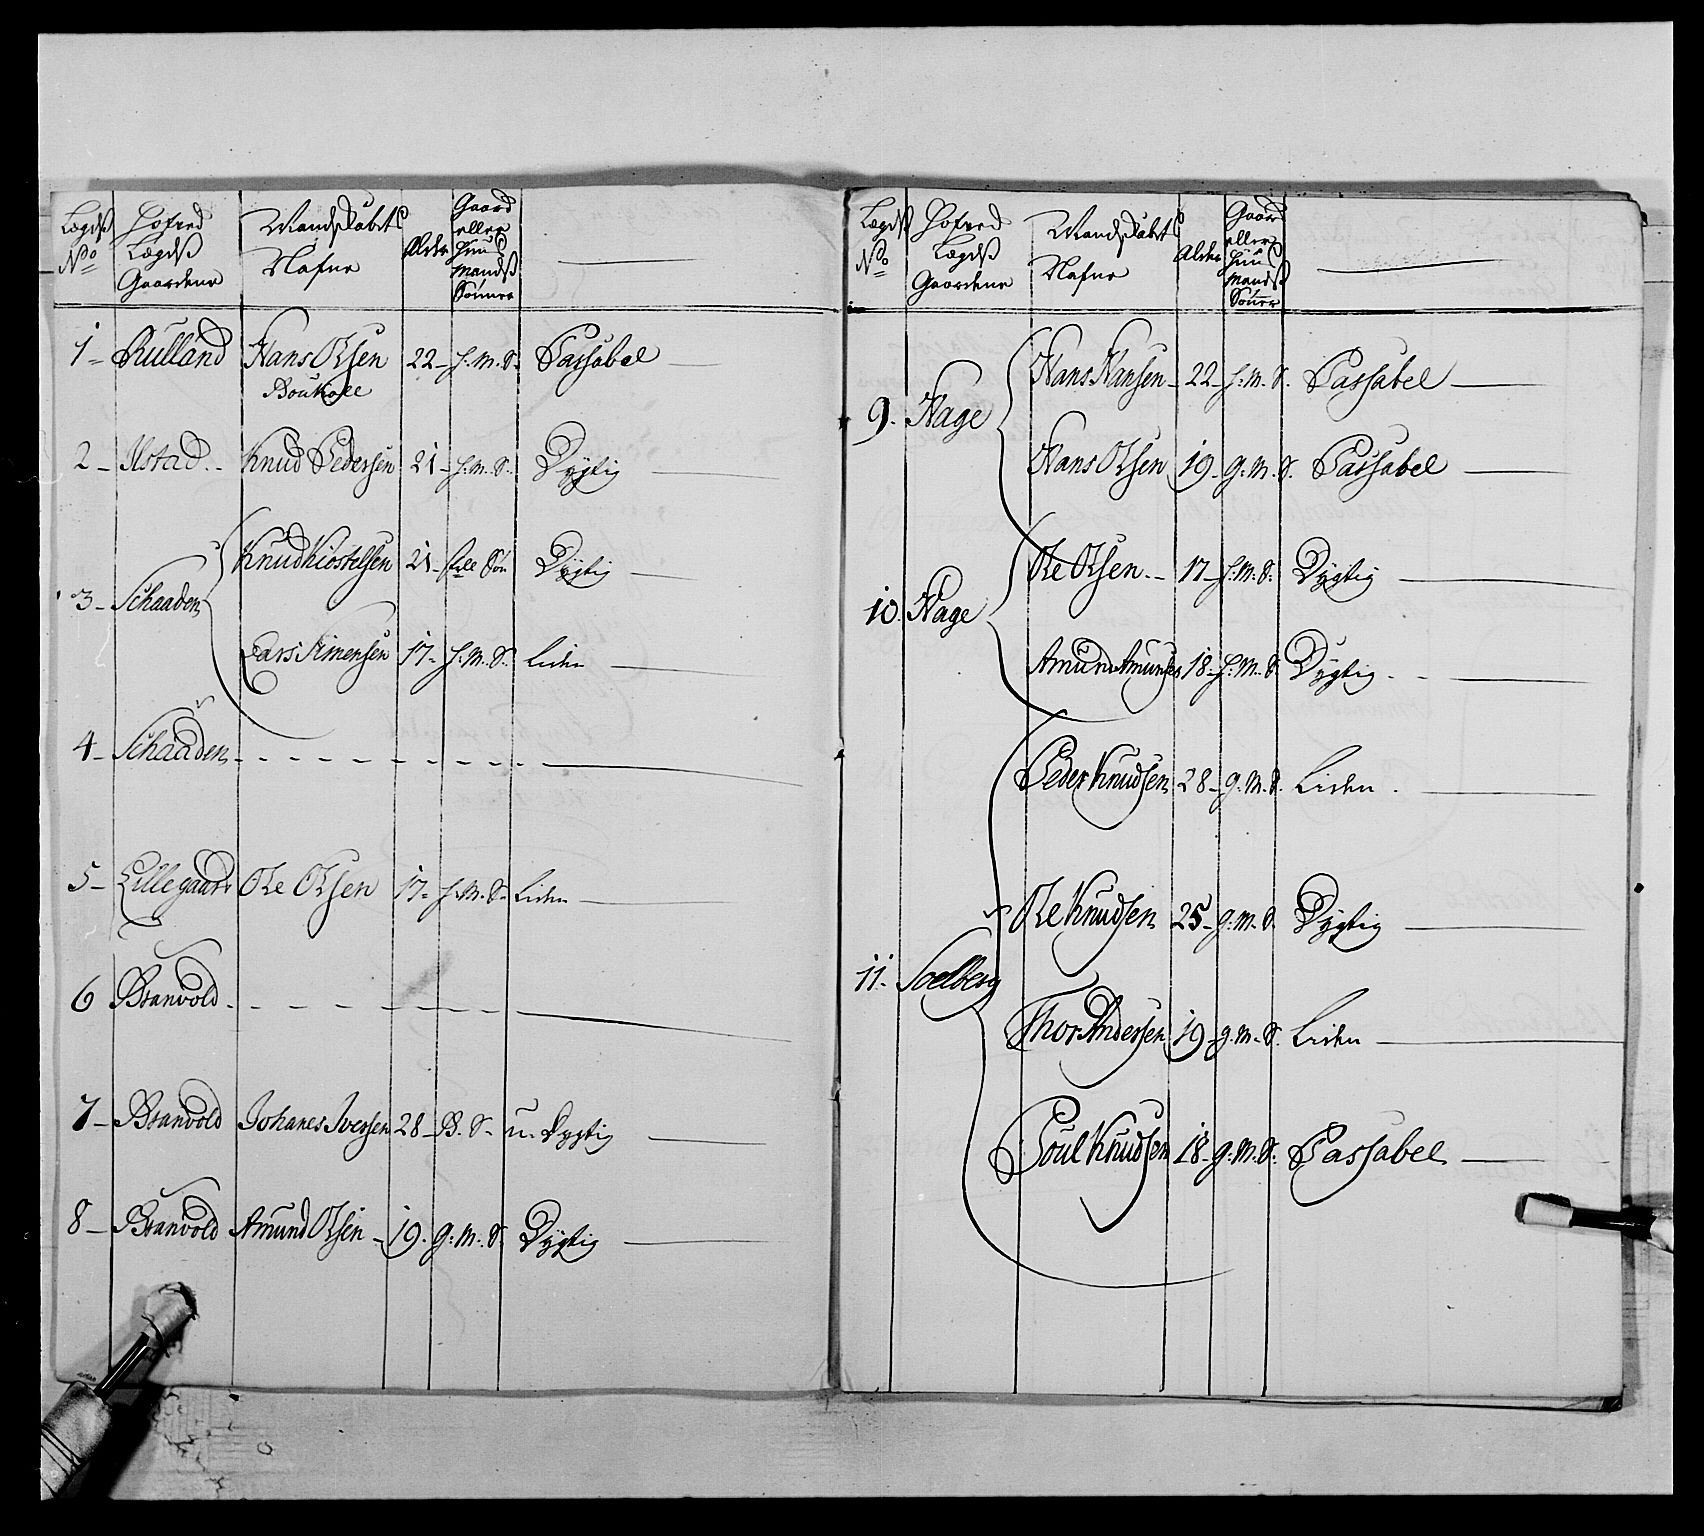 Lægdß No | Hofved Lægdß Gaardene | Mandskabets Nafne | Alder | Gaard eller Huus Mandß Sønner
1 - Rulland | Hans Olsen Boukolle | 22 - | H. M. S. | Passabel
2 - Ilstad - | Knud Pedersen | 21 - | H. M. S. | Dygtig
3 - Schaaden | Knud Kiostelsen | 21 - | Søn | Dygtig
Lars Simensen | 17 - | H. M. S. | Liden
4 - Schaaden - - -
5 - Lillegaard | Ole Olsen | 17 - | H. M. S. | Liden
6 Branvold - - -
7 - Branvold | Johanes Iversen | 28 - | B. S. - | u-Dygtig
8 - Branvold | Amund Olsen - | 19. | G. M. S. | Dygtig
Lægdß No | Hofved Lægdß Gaardene | Mandskabets Nafne | Alder | Gaard eller Huus Mandß Sønner
9. Hage | Hans Hansen - | 22 - | H. M. S. | Passabel
Hans Olsen | 19 - | G. M. S. | Passabel
10. Hage | Ole Olsen - | 17 - | H. M. S. | Dygtig
Amund Amunsen | 18 - | H. M. S. | Dygtig
11 - Soelberg | Peder Knudsen | 28 - | G. M. S. | Liden
Ole Knudsen | 25 - | G. M. S. | Dygtig
Thor Andersen | 19 - | G. M. S. | Liden
Poul Knudsen | 18 - | G. M. S. | Passabel